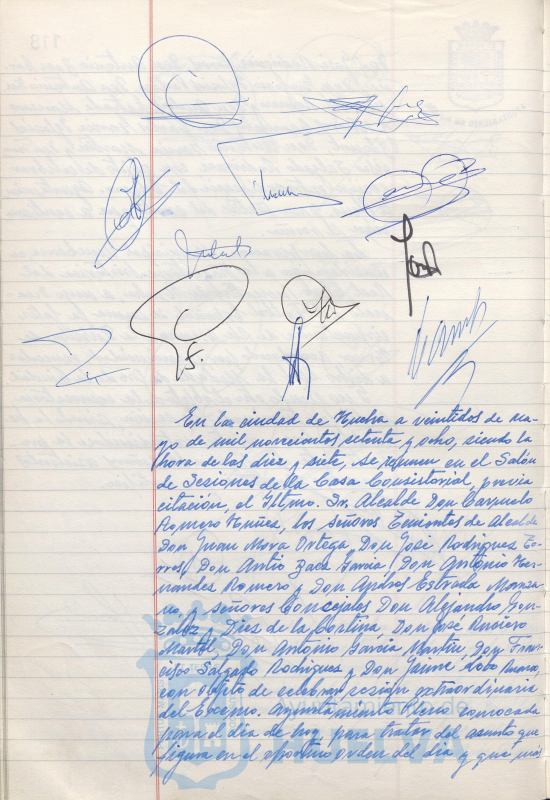 En la ciudad de Huelva a veintidos de ma-
yo de mil novecientos setenta y ocho, siendo la
hora de las diez y siete, se reunen en el Salón
de Sesiones de la Casa Consistorial, previa
citación, el Iltmo. Sr. Alcalde Don Carmelo
Romero Núñez, los señores Tenientes de Alcalde
Don Juan Mora Ortega, Don José Rodriguez To-
rres, Don Baca Garcia Don Antonio Her-
nandez Romero y Don Andres Estrada Manza-
no, y señores Concejales Don Alejandro Gon-
zalez y Diez de la Cortina, Don José
Martel Don Antonio Garcia Martin, Don Fran-
cisco Salgado Rodriguez y Don Jaime Lobo
con objeto de celebrar sesión extraordinaria
del Excmo. Ayuntamiento Pleno convocada
para el día de hoy, para tratar del asunto que
figura en el oportuno orden del día y que más